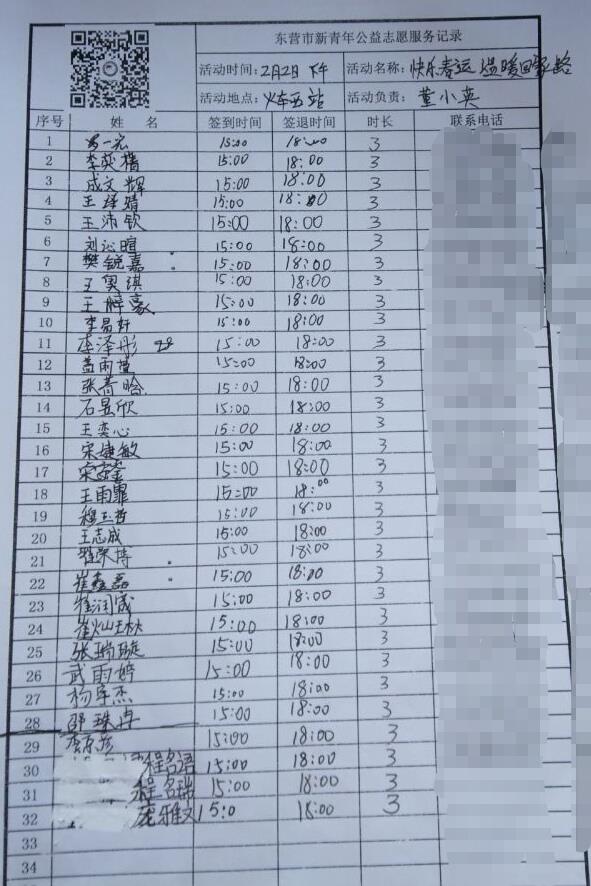 东营市新青年公益志愿服务记录
活动时间: 2月2日 下午 活动名称: 快乐春运 温暖回家路
活动地点: 火车西站 活动负责: 董小英
序号 姓名 签到时间 签退时间 时长 联系电话
1 一宏 15:00 18:00 3
2 李奕横 15:00 18:00 3
3 成文辉 15:00 18:00 3
4 王绎婧 15:00 18:00 3
5 王沛钦 15:00 18:00 3
6 刘沁暄 15:00 18:00 3
7 樊锐嘉 15:00 18:00 3
8 王昊琪 15:00 18:00 3
9 王 豪 15:00 18:00 3
10 李易轩 15:00 18:00 3
11 李泽彤 15:00 18:00 3
12 雨莹 15:00 18:00 3
13 张普晗 15:00 18:00 3
14 石昱欣 15:00 18:00 3
15 王奕心 15:00 18:00 3
16 宋婕敏 15:00 18:00 3
17 宋 15:00 18:00 3
18 王雨霏 15:00 18:00 3
19 程玉哲 15:00 18:00 3
20 王志成 15:00 18:00 3
21 荣博 15:00 18:00 3
22 崔鑫磊 15:00 18:00 3
23 崔润成 15:00 18:00 3
24 崔灿 15:00 18:00 3
25 张瑞璇 15:00 18:00 3
26 武雨婷 15:00 18:00 3
27 杨宇杰 15:00 18:00 3
28 邵珠冉 15:00 18:00 3
29 李彦 15:00 18:00 3
30 程名语 15:00 18:00 3
31 程名瑞 15:00 18:00 3
32 庞雅文 15:0 18:00 3
33
34